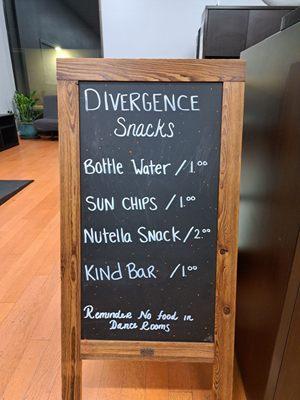 DIVERGENCE
Snacks
Bottle Water / 1.00
SUN CHIPS / 1.00
Nutella Snack / 2.00
KIND BAR / 1.00
Reminder No food in
Dance Rooms